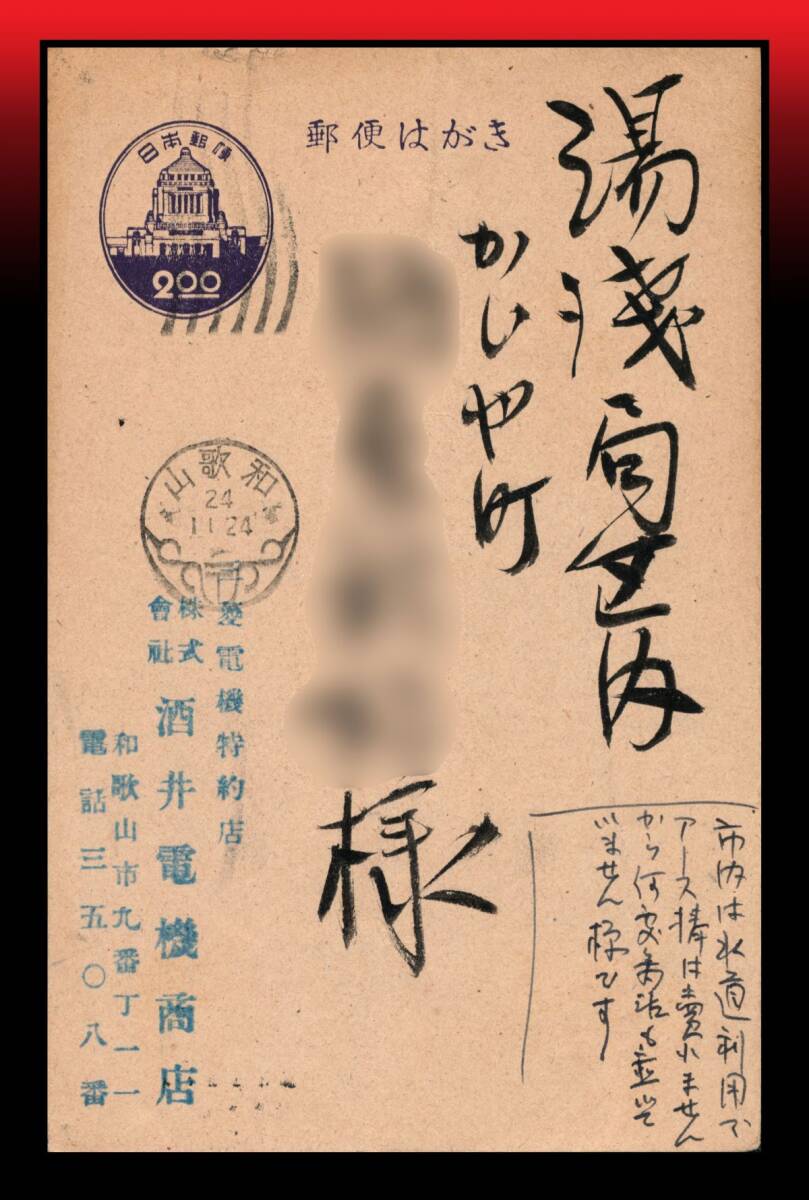 郵便はがき
日本郵便
2.00
湯浅局区内
かじや町
様
和歌山
24
11.24
三菱電機特約店
株式
會社
酒井電機商店
和歌山市九番丁一一
電話三五〇八番
市内は水道利用で
アース棒は賣れません
から何處商店も置いて
いません様です